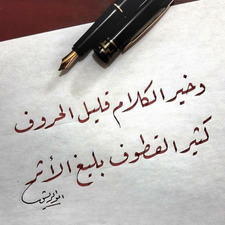 وخير الكلام قليل الحروف
كثير القطوف بليغ الأثر